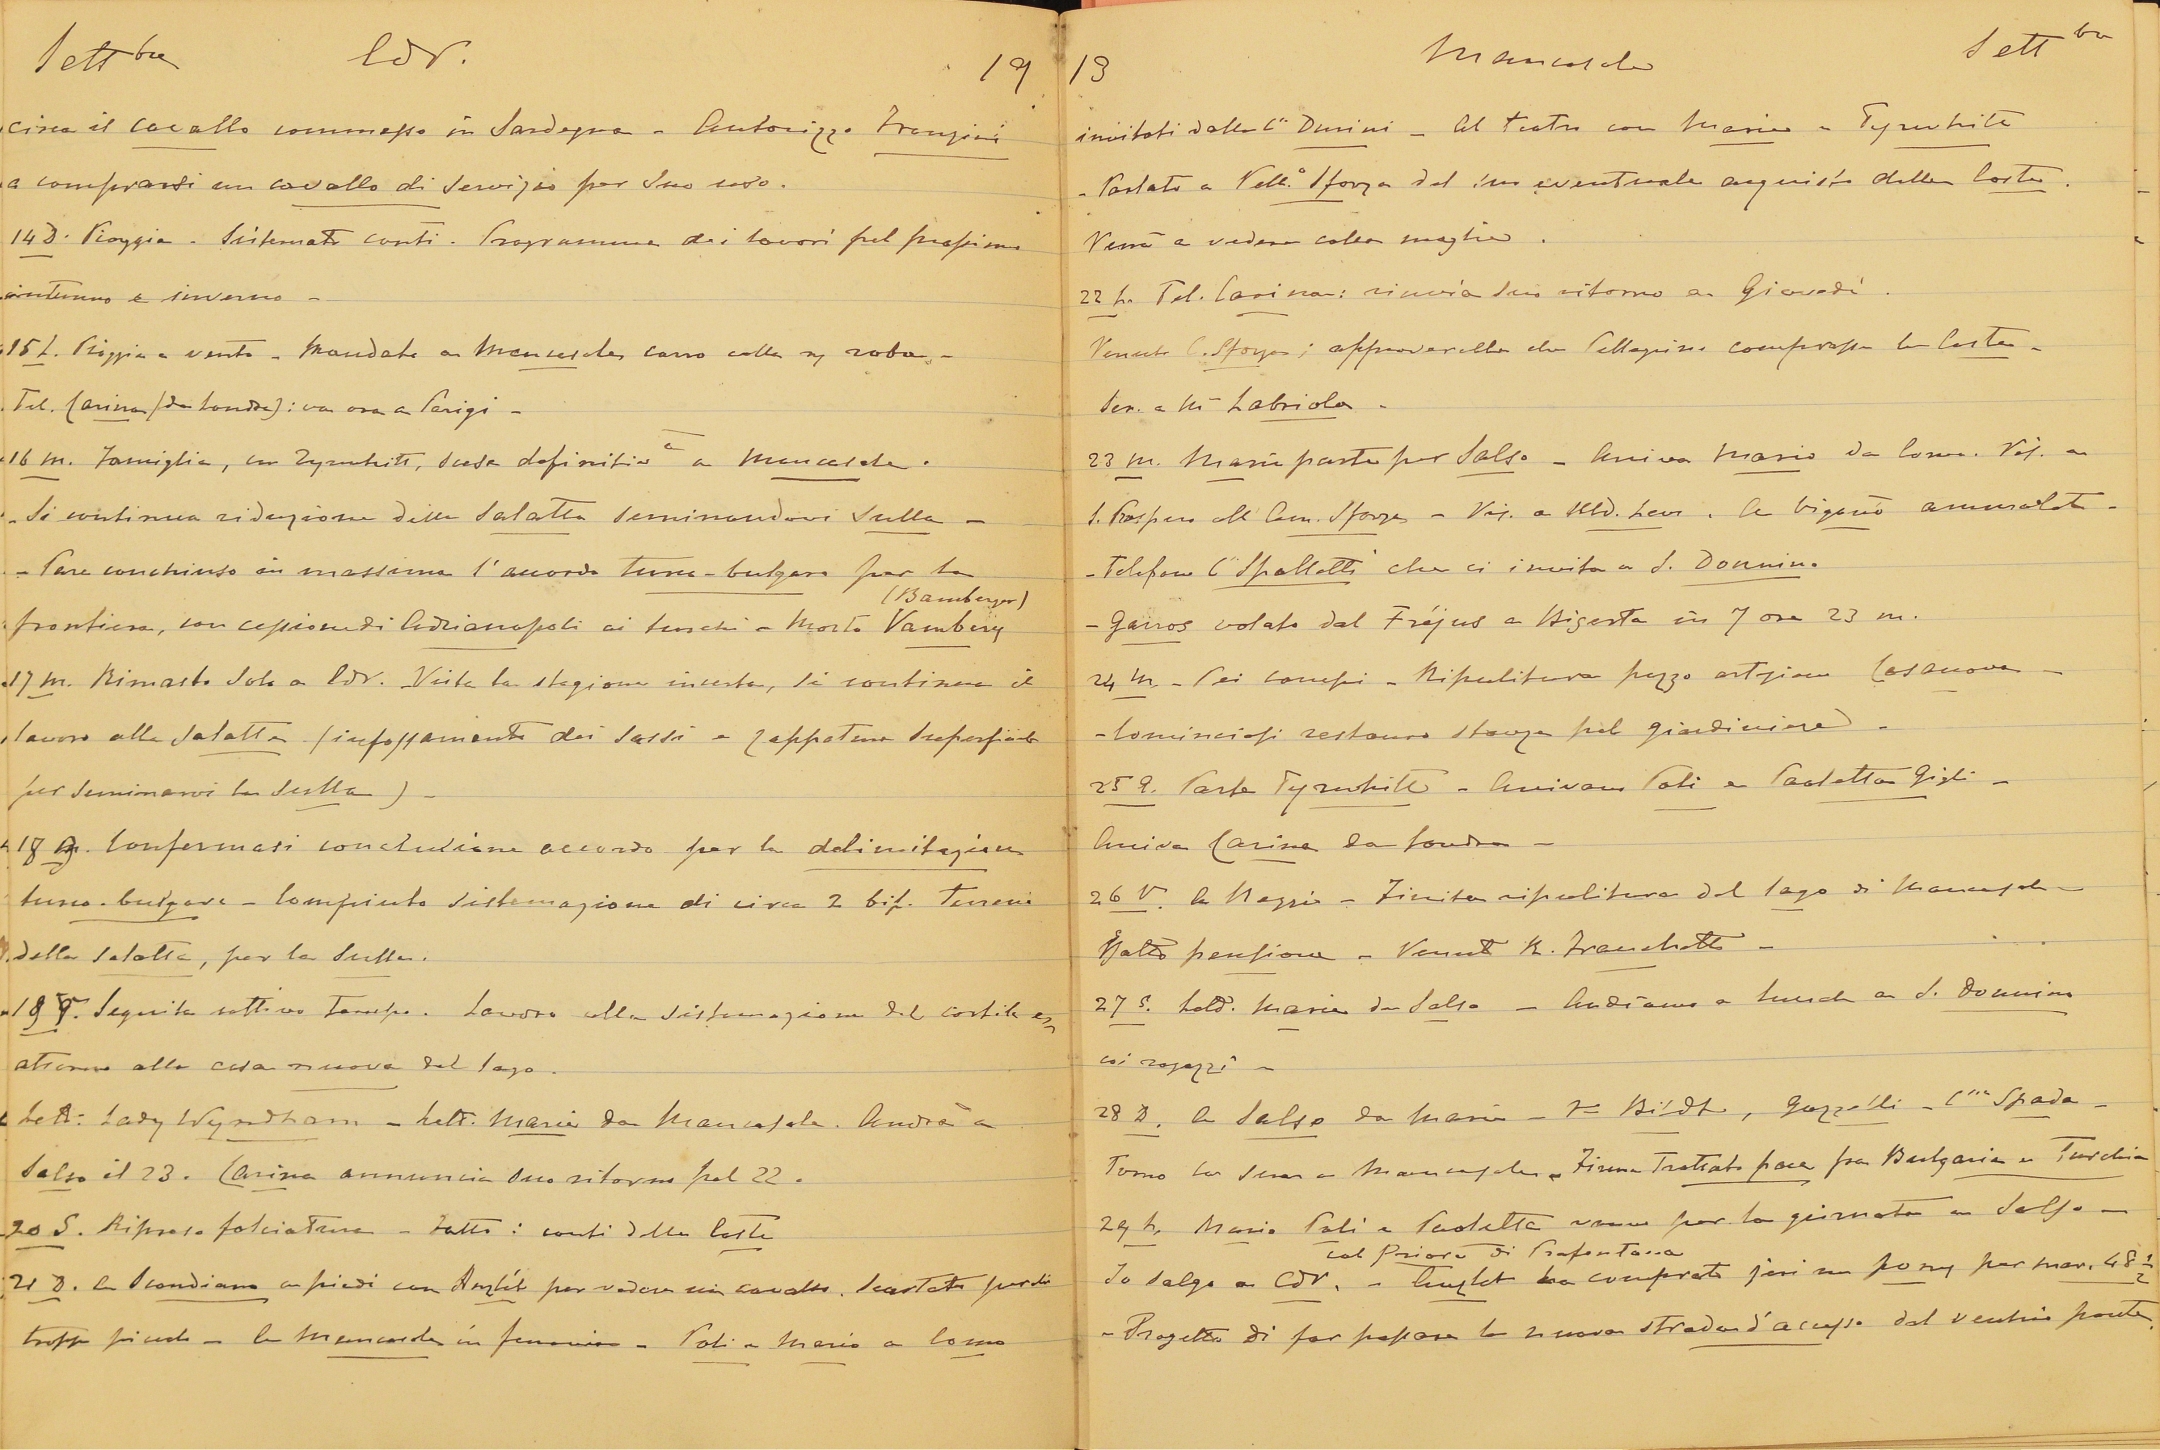 Settbre CdV. 19
circa il cavallo commesso in Sardegna - Autorizzo Franzini
a comprarsi un cavallo di servizio per suo uso.
14 D. Pioggia. Sistemati conti. Programma dei lavori pel prossimo
autunno e inverno -
15 L. Pioggia e vento - Mandato a Mancasale carro colla roba -
Tel. Carina (da Londra): va ora a Parigi -
16 M. Famiglia, con Tyrwhitt, scesa definitiva a Mancasale.
- Si continua riduzione della Salatta seminandovi Sulla -
- Pare conchiuso in massima l'accordo turco-bulgaro per la
(Bamberger)
frontiera, con cessione di Adrianopoli ai turchi - Morto Vambery
17 M. Rimasto solo a CdV. - Vista la stagione incerta, si continua il
lavoro alla Salatta (infossamento dei sassi e zappatura superficiale
per seminarvi la Sulla) -
18 G. Confermasi conclusione accordo per la delimitazione
turco-bulgara - Compiuta sistemazione di circa 2 bif. terreni
della Salatta, per la Sulla.
19 V. Seguita cattivo tempo. Lavoro alla sistemazione del cortile
attorno alla casa nuova del lago.
Lett: Lady Wyndham - Lett. Maria da Mancasale. Andrà a
Salso il 23. Carina annuncia suo ritorno pel 22.
20 S. Ripresa falciatura - Fatto: conti della Costa
21 D. A Scandiano a piedi con per vedere un cavallo. Scartato perchè
troppo piccolo - A Mancasale in ferrovia - Poli e Mario a Como
13 Mancasale Settbre
invitati dalla Cssa Durini - Al teatro con Maria e Tyrwhitt
- Parlato a Pell.o Sforza del suo eventuale acquisto della Costa.
Verrà a vedere colla moglie.
22 L. Tel. Carina: rinvia suo ritorno a Giovedì.
Venuto C. Sforza; approverebbe che Pellegrino comprasse la Costa -
Scr. a Labriola -
23 M. Maria parte per Salso - Arriva Mario da Como. Vis. a
S. Prospero all Sforza - Vis. a Levi. A Vigano ammalato -
- Telefona C Spalletti che ci invita a S. Donnino
- Garros volato dal Fréjus a Biserta in 7 ore 23 m.
24 M. - Pei campi - Ripulitura pozzo artesiano Casanova -
- Cominciasi restauro stanza pel giardiniere -
25 G. Parte Tyrwhitt - Arrivano Poli e Paoletta Gigli -
Arriva Carina da Londra -
26 V. A Reggio - Finita ripulitura del lago di Mancasale -
Esatto pensione - Venuto R. Franchetti -
27 S. Lett. Maria da Salso - Andiamo a lunch a S. Donnino
coi ragazzi -
28 D. A Salso da Maria - Bildt, Gazzelli - Cssa Spada -
Torno la sera a Mancasale - Firma Trattato pace fra Bulgaria e Turchia
29 L. Mario Poli e Paoletta vanno per la giornata a Salso -
col Priore di Prafontana
Io salgo a CdV. - ha comprato jeri un pony per mar. 48 1/2
- Progetto di far passare la nuova strada d'accesso dal vecchio ponte.